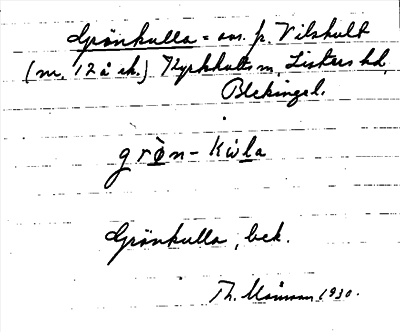 Grönkulla = avs. p. Vilshult
(nr. 12 å ek.) Kyrkhults sn, Listers hd,
Blekinge l.
grön-kùla
Grönkulla, bek.
Th. Månsson 1930.